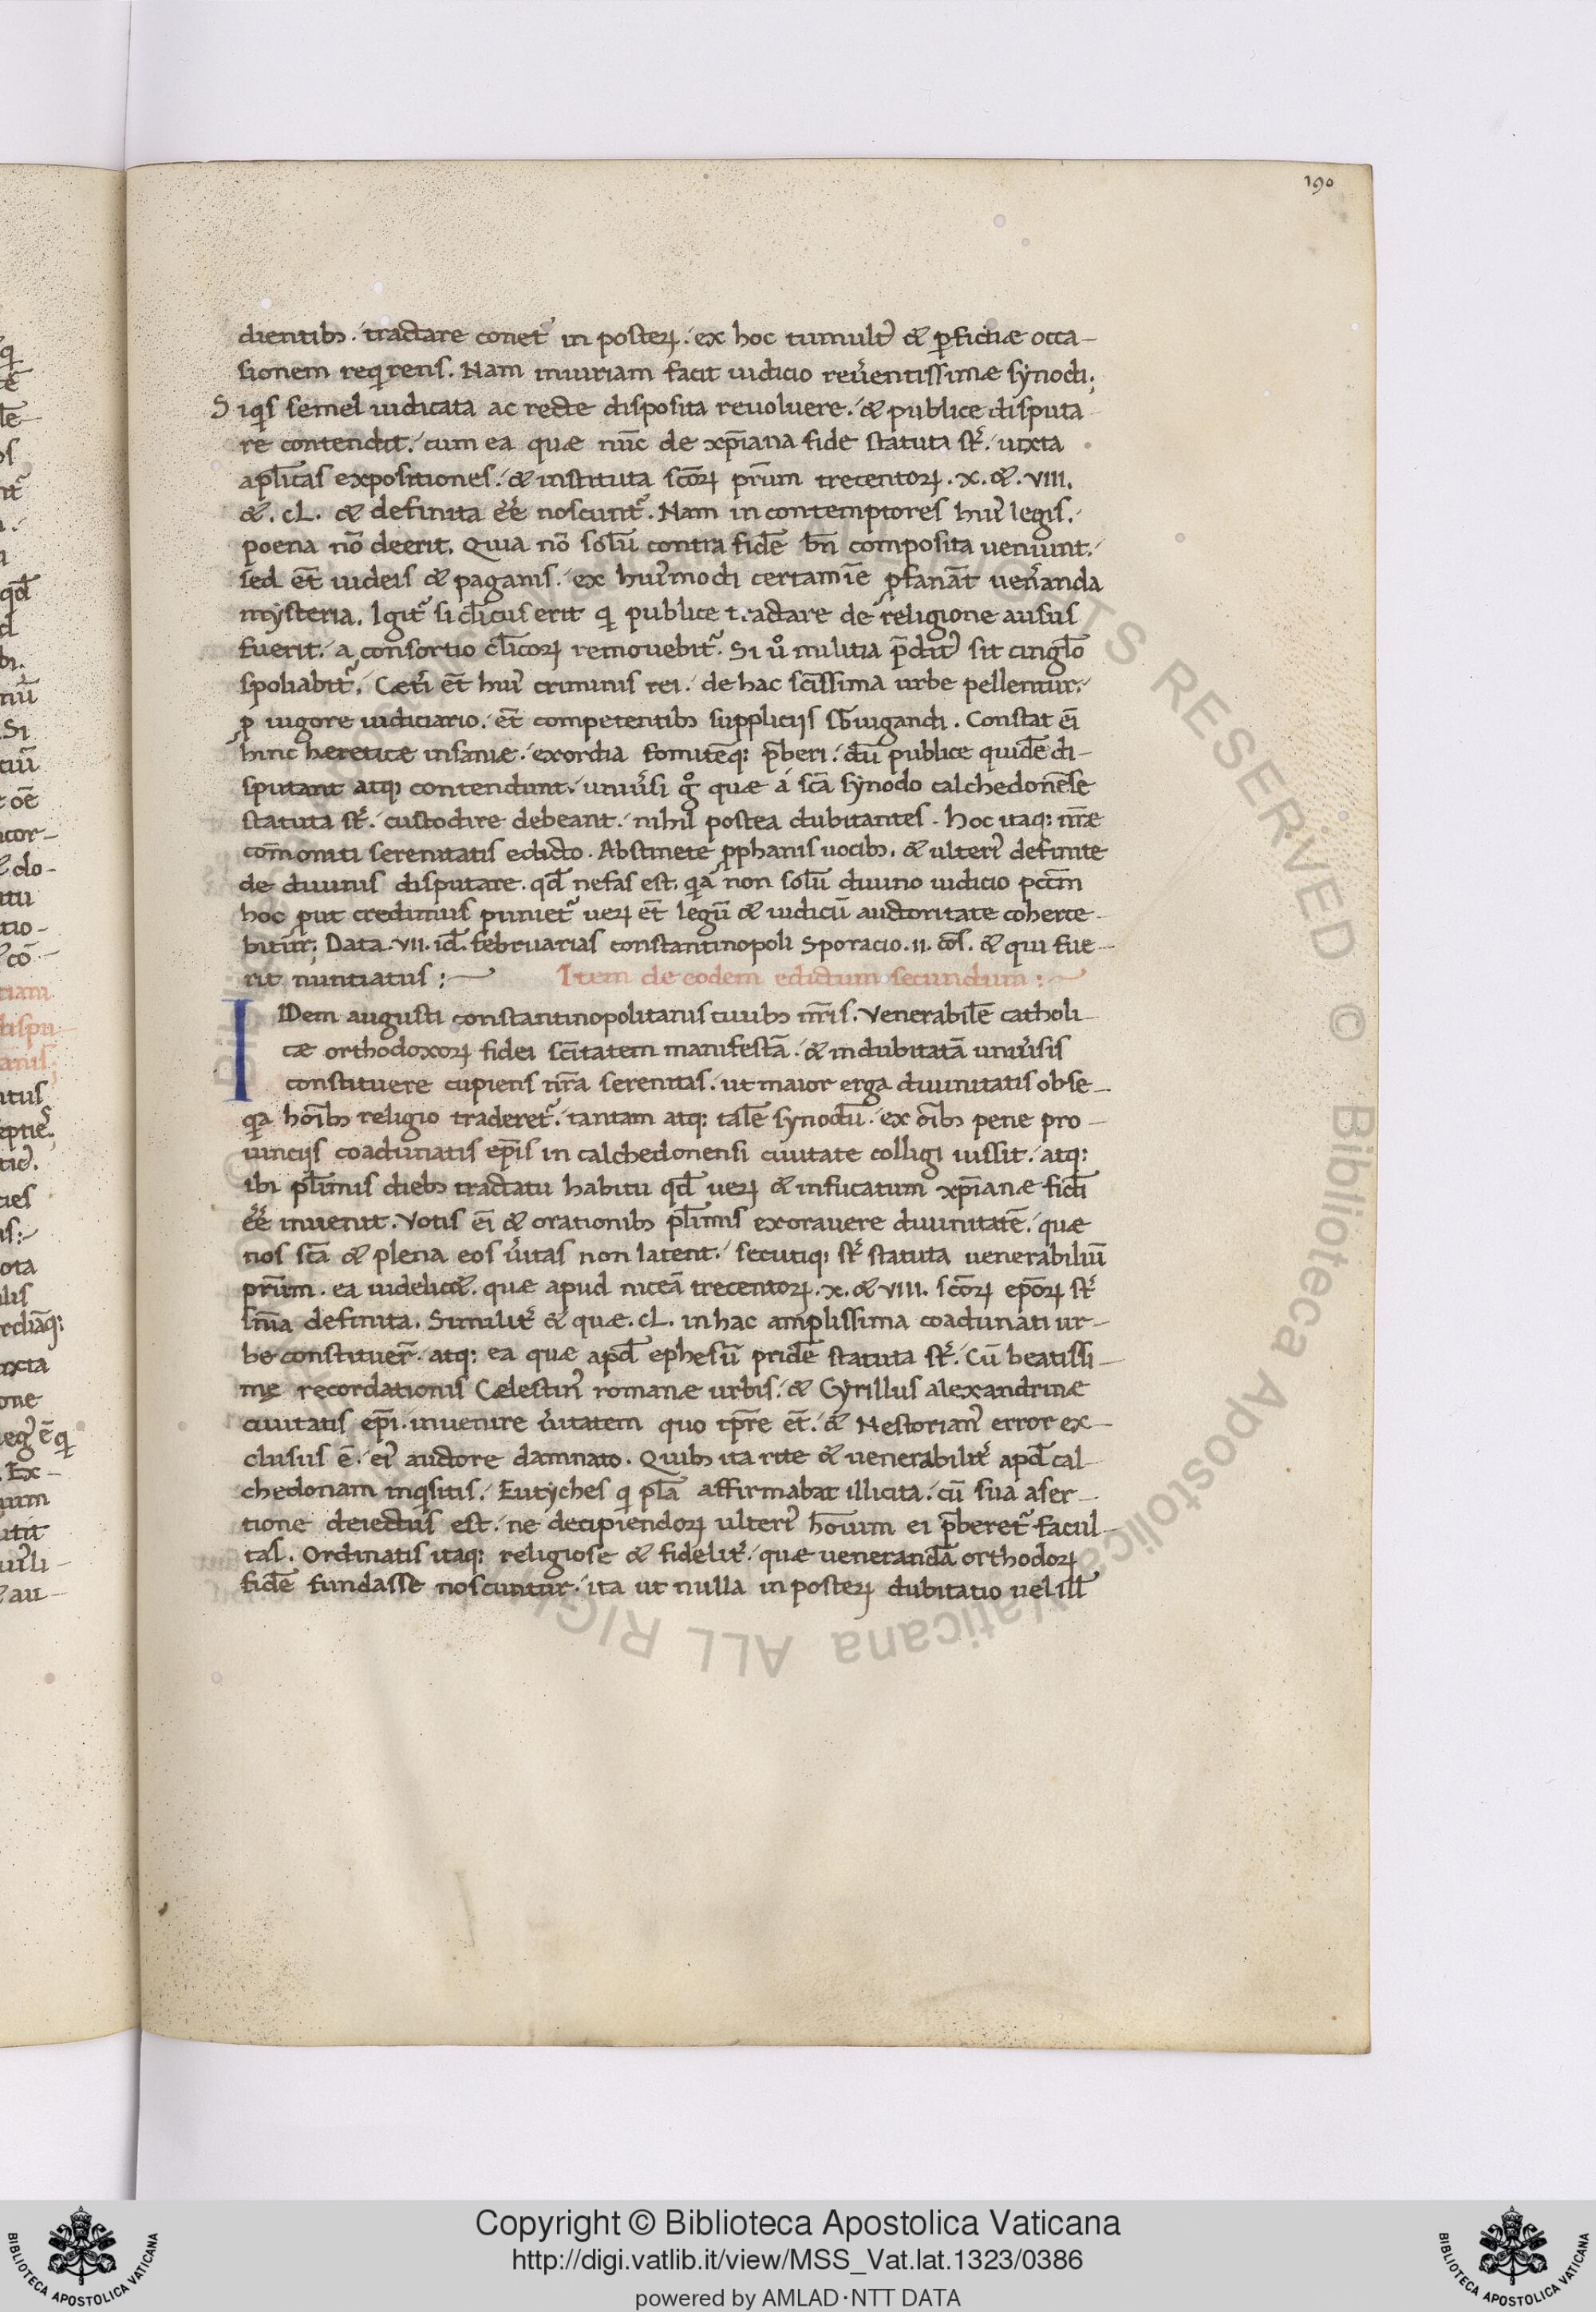 190
dientib᷒. tractare conet᷑ in posteꝝ. ex hoc tumult᷒ & ꝑfidiæ occa-
sionem reqͥrens. Nam iniuriam facit iudicio reu̓entissimæ sẏnodi;
Siqͥs semel iudicata ac recte disposita reuoluere. & publice disputa
re contendit. cum ea quæ nūc de xp̄iana fide statuta st̄. iuxta
ap̄licas expositiones. & instituta sc̄oꝝ pr̄um trecentoꝝ. x. &. VIII.
&. CL. & definita ēē noscunt᷑. Nam in contemptores hui᷒ legis.
poena nō deerit. Quia nō solū contra fidē bn̄ composita ueniunt.
sed et̄ iudeis & paganis. ex hui᷒modi certamīe ꝓfanāt uen̓anda
mẏsteria. Igit᷑ si cl̄icus erit qͥ publice t.actare de religione ausus
fuerit. a consortio cl̄icoꝝ remouebit᷑. Si ů militia p̄dit᷒ sit cingl̄o
spoliabit᷑. Cæt̓i et̄ hui᷒ criminis rei. de hac sc̄issima urbe pellentur.
ꝓ uigore iudiciario. et̄ competentib᷒ supplicijs sb̄iugandi. Constat ei̅
hinc heretice insaniæ. exordia fomitēq; p̄beri. dū publice quidē di-
sputant atq; contendunt. uniu̓si g̊ quæ á sc̄a sẏnodo calchedonēse
statuta st̄. custodire debeant. nihil postea dubitantes. hoc itaq; nr̄æ
com̄oniti serenitatis edicto. Abstinete ꝓphanis uocib᷒. & ulteri᷒ definite
de diuinis disputare. qd̄ nefas est. qͥa non solū diuino iudicio pcc̄m
hoc ꝓut credimus puniet᷑ ueꝝ et̄ legū & iudicū auctoritate coherce
bitur; Data. VII. id̄. februarias constantinopoli Sporacio. II. co̅s. & qui fue-
rit nuntiatus: Item de eodem edictum secundum:
IDem augusti constantinopolitanis ciuib᷒ nr̄is. Venerabilē catholi-
cæ orthodoxoꝝ fidei sc̄itatem manifestā. & indubitatā uniu̓sis
constituere cupiens nr̄a serenitas. ut maior erga diuinitatis obse-
qͥa ho̅ib᷒ religio traderet᷑. tantam atq; talē sẏnodū. ex o̅ib᷒ pene pro-
uincijs coadunatis ep̄is in calchedonensi ciuitate colligi iussit. atq;
ibi pl̄imis dieb᷒ tractatu habitu qd̄ ueꝝ & infucatum xp̄ianæ fidi̅
ēē inuenit. Votis ei̅ & orationib᷒ pl̄imis exorauere diuinitatē. quæ
nos sc̄a & plena eos u̓itas non latent. secutiq; st̄ statuta uenerabiliū
pr̄um. ea uidelic&. quæ apud niceā trecentoꝝ. x. & VIII. sc̄oꝝ ep̄oꝝ st̄
sn̄ia definita. Similit̓ & quæ. CL. in hac amplissima coadunati ur-
be constituer̄. atq; ea quæ apd̄ ephesū pridē statuta st̄. Cū beatissi-
mę recordationis Cælestin᷒ romanæ urbis. & Cẏrillus alexandrinæ
ciuitatis ep̄i. inuenire u̓itatem quo tp̄re et̄. & Nestorian᷒ error ex-
clusus ē. ei᷒ auctore damnato. Quib᷒ ita rite & uenerabilit̓ apd̄ cal-
chedonam inqͥsitis. Eutẏches qͥ pl̄a affirmabat illicita. cū sua aser-
tione deiectus est. ne decipiendoꝝ ulteri᷒ ho̅ium ei p̄beret᷑ facul-
tas. Ordinatis itaq; religiose & fidelit̓. quæ uenerandā orthodoꝝ
fidē fundasse noscuntur. ita ut nulla in posteꝝ dubitatio uel ill̄
Copyright © Biblioteca Apostolica Vaticana
http://digi.vatlib.it/view/MSS_Vat.lat.1323/0386
powered by AMLAD·NTT DATA